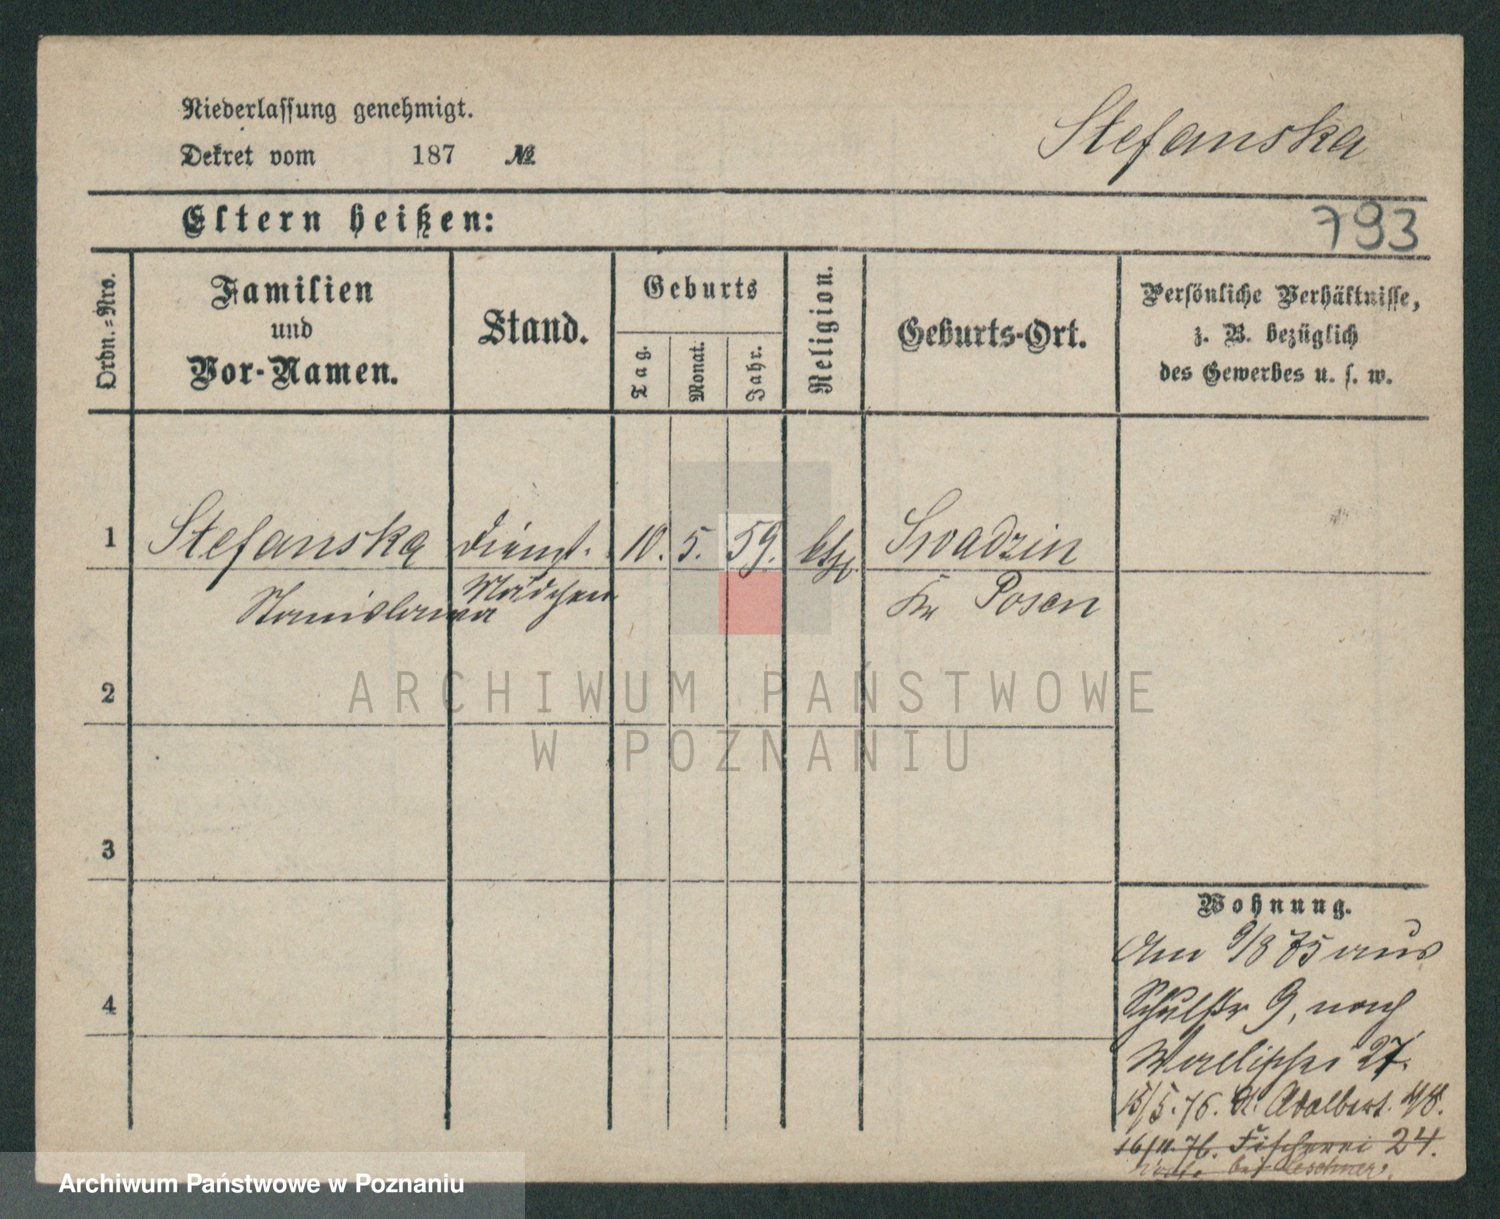 Niederlassung genehmigt.
Dekret vom 187 №
Stefanska
Eltern heißen:
793
Ordn.=Nro.
Familien
und
Vor-Namen.
Stand.
Geburts
Tag.
Monat.
Jahr.
Religion.
Geburts-Ort.
Persönliche Verhältnisse,
z. B. bezüglich
des Gewerbes u. s. w.
1 Stefanska Dienst- 10. 5. 59. kth. Swadzin
Stanislawa Mädchen Kr Posen
2
ARCHIWUM PAŃSTWOWE
W POZNANIU
3
Wohnung.
Am 9/8 75 aus
Schulstr 9, nach
Wallischei 27.
15/5.76. St. Adalbert 4/8.
16/11.76. Fischerei 24.
Archiwum Państwowe w Poznaniu